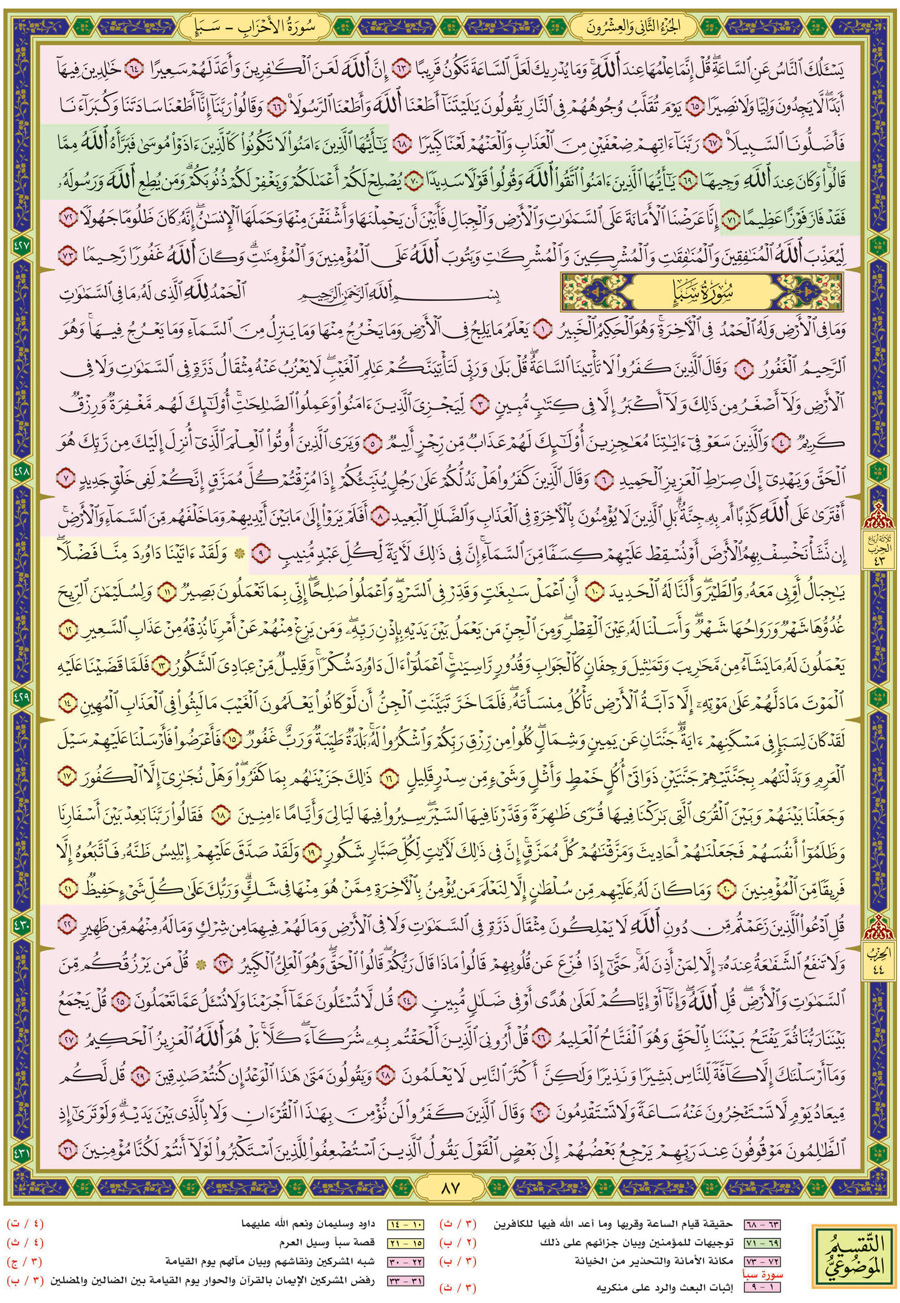 الجزء الثاني والعشرون
سورة الأحزاب - سبإ
يَسْـَٔلُكَ ٱلنَّاسُ عَنِ ٱلسَّاعَةِۖ قُلْ إِنَّمَا عِلْمُهَا عِندَ ٱللَّهِۚ وَمَا يُدْرِيكَ لَعَلَّ ٱلسَّاعَةَ تَكُونُ قَرِيبًا ٦٣ إِنَّ ٱللَّهَ لَعَنَ ٱلْكَٰفِرِينَ وَأَعَدَّ لَهُمْ سَعِيرًا ٦٤ خَٰلِدِينَ فِيهَآ
أَبَدًاۖ لَّا يَجِدُونَ وَلِيًّا وَلَا نَصِيرًا ٦٥ يَوْمَ تُقَلَّبُ وُجُوهُهُمْ فِى ٱلنَّارِ يَقُولُونَ يَٰلَيْتَنَآ أَطَعْنَا ٱللَّهَ وَأَطَعْنَا ٱلرَّسُولَا۠ ٦٦ وَقَالُوا۟ رَبَّنَآ إِنَّآ أَطَعْنَا سَادَتَنَا وَكُبَرَآءَنَا
فَأَضَلُّونَا ٱلسَّبِيلَا۠ ٦٧ رَبَّنَآ ءَاتِهِمْ ضِعْفَيْنِ مِنَ ٱلْعَذَابِ وَٱلْعَنْهُمْ لَعْنًا كَبِيرًا ٦٨ يَٰٓأَيُّهَا ٱلَّذِينَ ءَامَنُوا۟ لَا تَكُونُوا۟ كَٱلَّذِينَ ءَاذَوْا۟ مُوسَىٰ فَبَرَّأَهُ ٱللَّهُ مِمَّا
قَالُوا۟ۚ وَكَانَ عِندَ ٱللَّهِ وَجِيهًا ٦٩ يَٰٓأَيُّهَا ٱلَّذِينَ ءَامَنُوا۟ ٱتَّقُوا۟ ٱللَّهَ وَقُولُوا۟ قَوْلًا سَدِيدًا ٧٠ يُصْلِحْ لَكُمْ أَعْمَٰلَكُمْ وَيَغْفِرْ لَكُمْ ذُنُوبَكُمْۗ وَمَن يُطِعِ ٱللَّهَ وَرَسُولَهُۥ
فَقَدْ فَازَ فَوْزًا عَظِيمًا ٧١ إِنَّا عَرَضْنَا ٱلْأَمَانَةَ عَلَى ٱلسَّمَٰوَٰتِ وَٱلْأَرْضِ وَٱلْجِبَالِ فَأَبَيْنَ أَن يَحْمِلْنَهَا وَأَشْفَقْنَ مِنْهَا وَحَمَلَهَا ٱلْإِنسَٰنُۖ إِنَّهُۥ كَانَ ظَلُومًا جَهُولًا ٧٢
لِّيُعَذِّبَ ٱللَّهُ ٱلْمُنَٰفِقِينَ وَٱلْمُنَٰفِقَٰتِ وَٱلْمُشْرِكِينَ وَٱلْمُشْرِكَٰتِ وَيَتُوبَ ٱللَّهُ عَلَى ٱلْمُؤْمِنِينَ وَٱلْمُؤْمِنَٰتِۗ وَكَانَ ٱللَّهُ غَفُورًا رَّحِيمًا ٧٣
سُورَةُ سَبَإٍ
بِسْمِ ٱللَّهِ ٱلرَّحْمَٰنِ ٱلرَّحِيمِ ٱلْحَمْدُ لِلَّهِ ٱلَّذِى لَهُۥ مَا فِى ٱلسَّمَٰوَٰتِ
وَمَا فِى ٱلْأَرْضِ وَلَهُ ٱلْحَمْدُ فِى ٱلْءَاخِرَةِۚ وَهُوَ ٱلْحَكِيمُ ٱلْخَبِيرُ ١ يَعْلَمُ مَا يَلِجُ فِى ٱلْأَرْضِ وَمَا يَخْرُجُ مِنْهَا وَمَا يَنزِلُ مِنَ ٱلسَّمَآءِ وَمَا يَعْرُجُ فِيهَاۚ وَهُوَ
ٱلرَّحِيمُ ٱلْغَفُورُ ٢ وَقَالَ ٱلَّذِينَ كَفَرُوا۟ لَا تَأْتِينَا ٱلسَّاعَةُۖ قُلْ بَلَىٰ وَرَبِّى لَتَأْتِيَنَّكُمْ عَٰلِمِ ٱلْغَيْبِۖ لَا يَعْزُبُ عَنْهُ مِثْقَالُ ذَرَّةٍ فِى ٱلسَّمَٰوَٰتِ وَلَا فِى
ٱلْأَرْضِ وَلَآ أَصْغَرُ مِن ذَٰلِكَ وَلَآ أَكْبَرُ إِلَّا فِى كِتَٰبٍ مُّبِينٍ ٣ لِّيَجْزِىَ ٱلَّذِينَ ءَامَنُوا۟ وَعَمِلُوا۟ ٱلصَّٰلِحَٰتِۚ أُو۟لَٰٓئِكَ لَهُم مَّغْفِرَةٌ وَرِزْقٌ
كَرِيمٌ ٤ وَٱلَّذِينَ سَعَوْ فِىٓ ءَايَٰتِنَا مُعَٰجِزِينَ أُو۟لَٰٓئِكَ لَهُمْ عَذَابٌ مِّن رِّجْزٍ أَلِيمٌ ٥ وَيَرَى ٱلَّذِينَ أُوتُوا۟ ٱلْعِلْمَ ٱلَّذِىٓ أُنزِلَ إِلَيْكَ مِن رَّبِّكَ هُوَ
ٱلْحَقَّ وَيَهْدِىٓ إِلَىٰ صِرَٰطِ ٱلْعَزِيزِ ٱلْحَمِيدِ ٦ وَقَالَ ٱلَّذِينَ كَفَرُوا۟ هَلْ نَدُلُّكُمْ عَلَىٰ رَجُلٍ يُنَبِّئُكُمْ إِذَا مُزِّقْتُمْ كُلَّ مُمَزَّقٍ إِنَّكُمْ لَفِى خَلْقٍ جَدِيدٍ ٧
أَفْتَرَىٰ عَلَى ٱللَّهِ كَذِبًا أَم بِهِۦ جِنَّةٌۗ بَلِ ٱلَّذِينَ لَا يُؤْمِنُونَ بِٱلْءَاخِرَةِ فِى ٱلْعَذَابِ وَٱلضَّلَٰلِ ٱلْبَعِيدِ ٨ أَفَلَمْ يَرَوْا۟ إِلَىٰ مَا بَيْنَ أَيْدِيهِمْ وَمَا خَلْفَهُم مِّنَ ٱلسَّمَآءِ وَٱلْأَرْضِۚ
إِن نَّشَأْ نَخْسِفْ بِهِمُ ٱلْأَرْضَ أَوْ نُسْقِطْ عَلَيْهِمْ كِسَفًا مِّنَ ٱلسَّمَآءِۚ إِنَّ فِى ذَٰلِكَ لَءَايَةً لِّكُلِّ عَبْدٍ مُّنِيبٍ ٩ ۞ وَلَقَدْ ءَاتَيْنَا دَاوُۥدَ مِنَّا فَضْلًاۖ
يَٰجِبَالُ أَوِّبِى مَعَهُۥ وَٱلطَّيْرَۖ وَأَلَنَّا لَهُ ٱلْحَدِيدَ ١٠ أَنِ ٱعْمَلْ سَٰبِغَٰتٍ وَقَدِّرْ فِى ٱلسَّرْدِۖ وَٱعْمَلُوا۟ صَٰلِحًاۖ إِنِّى بِمَا تَعْمَلُونَ بَصِيرٌ ١١ وَلِسُلَيْمَٰنَ ٱلرِّيحَ
غُدُوُّهَا شَهْرٌ وَرَوَاحُهَا شَهْرٌۖ وَأَسَلْنَا لَهُۥ عَيْنَ ٱلْقِطْرِۖ وَمِنَ ٱلْجِنِّ مَن يَعْمَلُ بَيْنَ يَدَيْهِ بِإِذْنِ رَبِّهِۦۖ وَمَن يَزِغْ مِنْهُمْ عَنْ أَمْرِنَا نُذِقْهُ مِنْ عَذَابِ ٱلسَّعِيرِ ١٢
يَعْمَلُونَ لَهُۥ مَا يَشَآءُ مِن مَّحَٰرِيبَ وَتَمَٰثِيلَ وَجِفَانٍ كَٱلْجَوَابِ وَقُدُورٍ رَّاسِيَٰتٍۚ ٱعْمَلُوٓا۟ ءَالَ دَاوُۥدَ شُكْرًاۚ وَقَلِيلٌ مِّنْ عِبَادِىَ ٱلشَّكُورُ ١٣ فَلَمَّا قَضَيْنَا عَلَيْهِ
ٱلْمَوْتَ مَا دَلَّهُمْ عَلَىٰ مَوْتِهِۦٓ إِلَّا دَآبَّةُ ٱلْأَرْضِ تَأْكُلُ مِنسَأَتَهُۥۖ فَلَمَّا خَرَّ تَبَيَّنَتِ ٱلْجِنُّ أَن لَّوْ كَانُوا۟ يَعْلَمُونَ ٱلْغَيْبَ مَا لَبِثُوا۟ فِى ٱلْعَذَابِ ٱلْمُهِينِ ١٤
لَقَدْ كَانَ لِسَبَإٍ فِى مَسْكَنِهِمْ ءَايَةٌۖ جَنَّتَانِ عَن يَمِينٍ وَشِمَالٍۖ كُلُوا۟ مِن رِّزْقِ رَبِّكُمْ وَٱشْكُرُوا۟ لَهُۥۚ بَلْدَةٌ طَيِّبَةٌ وَرَبٌّ غَفُورٌ ١٥ فَأَعْرَضُوا۟ فَأَرْسَلْنَا عَلَيْهِمْ سَيْلَ
ٱلْعَرِمِ وَبَدَّلْنَٰهُم بِجَنَّتَيْهِمْ جَنَّتَيْنِ ذَوَاتَىْ أُكُلٍ خَمْطٍ وَأَثْلٍ وَشَىْءٍ مِّن سِدْرٍ قَلِيلٍ ١٦ ذَٰلِكَ جَزَيْنَٰهُم بِمَا كَفَرُوا۟ۖ وَهَلْ نُجَٰزِىٓ إِلَّا ٱلْكَفُورَ ١٧
وَجَعَلْنَا بَيْنَهُمْ وَبَيْنَ ٱلْقُرَى ٱلَّتِى بَٰرَكْنَا فِيهَا قُرًى ظَٰهِرَةً وَقَدَّرْنَا فِيهَا ٱلسَّيْرَۖ سِيرُوا۟ فِيهَا لَيَالِىَ وَأَيَّامًا ءَامِنِينَ ١٨ فَقَالُوا۟ رَبَّنَا بَٰعِدْ بَيْنَ أَسْفَارِنَا
وَظَلَمُوٓا۟ أَنفُسَهُمْ فَجَعَلْنَٰهُمْ أَحَادِيثَ وَمَزَّقْنَٰهُمْ كُلَّ مُمَزَّقٍۚ إِنَّ فِى ذَٰلِكَ لَءَايَٰتٍ لِّكُلِّ صَبَّارٍ شَكُورٍ ١٩ وَلَقَدْ صَدَّقَ عَلَيْهِمْ إِبْلِيسُ ظَنَّهُۥ فَٱتَّبَعُوهُ إِلَّا
فَرِيقًا مِّنَ ٱلْمُؤْمِنِينَ ٢٠ وَمَا كَانَ لَهُۥ عَلَيْهِم مِّن سُلْطَٰنٍ إِلَّا لِنَعْلَمَ مَن يُؤْمِنُ بِٱلْءَاخِرَةِ مِمَّنْ هُوَ مِنْهَا فِى شَكٍّۗ وَرَبُّكَ عَلَىٰ كُلِّ شَىْءٍ حَفِيظٌ ٢١
قُلِ ٱدْعُوا۟ ٱلَّذِينَ زَعَمْتُم مِّن دُونِ ٱللَّهِ لَا يَمْلِكُونَ مِثْقَالَ ذَرَّةٍ فِى ٱلسَّمَٰوَٰتِ وَلَا فِى ٱلْأَرْضِ وَمَا لَهُمْ فِيهِمَا مِن شِرْكٍ وَمَا لَهُۥ مِنْهُم مِّن ظَهِيرٍ ٢٢
وَلَا تَنفَعُ ٱلشَّفَٰعَةُ عِندَهُۥٓ إِلَّا لِمَنْ أَذِنَ لَهُۥۚ حَتَّىٰٓ إِذَا فُزِّعَ عَن قُلُوبِهِمْ قَالُوا۟ مَاذَا قَالَ رَبُّكُمْۖ قَالُوا۟ ٱلْحَقَّۖ وَهُوَ ٱلْعَلِىُّ ٱلْكَبِيرُ ٢٣ ۞ قُلْ مَن يَرْزُقُكُم مِّنَ
ٱلسَّمَٰوَٰتِ وَٱلْأَرْضِۖ قُلِ ٱللَّهُۖ وَإِنَّآ أَوْ إِيَّاكُمْ لَعَلَىٰ هُدًى أَوْ فِى ضَلَٰلٍ مُّبِينٍ ٢٤ قُل لَّا تُسْـَٔلُونَ عَمَّآ أَجْرَمْنَا وَلَا نُسْـَٔلُ عَمَّا تَعْمَلُونَ ٢٥ قُلْ يَجْمَعُ
بَيْنَنَا رَبُّنَا ثُمَّ يَفْتَحُ بَيْنَنَا بِٱلْحَقِّ وَهُوَ ٱلْفَتَّاحُ ٱلْعَلِيمُ ٢٦ قُلْ أَرُونِىَ ٱلَّذِينَ أَلْحَقْتُم بِهِۦ شُرَكَآءَۖ كَلَّاۚ بَلْ هُوَ ٱللَّهُ ٱلْعَزِيزُ ٱلْحَكِيمُ ٢٧
وَمَآ أَرْسَلْنَٰكَ إِلَّا كَآفَّةً لِّلنَّاسِ بَشِيرًا وَنَذِيرًا وَلَٰكِنَّ أَكْثَرَ ٱلنَّاسِ لَا يَعْلَمُونَ ٢٨ وَيَقُولُونَ مَتَىٰ هَٰذَا ٱلْوَعْدُ إِن كُنتُمْ صَٰدِقِينَ ٢٩ قُل لَّكُم
مِّيعَادُ يَوْمٍ لَّا تَسْتَـْٔخِرُونَ عَنْهُ سَاعَةً وَلَا تَسْتَقْدِمُونَ ٣٠ وَقَالَ ٱلَّذِينَ كَفَرُوا۟ لَن نُّؤْمِنَ بِهَٰذَا ٱلْقُرْءَانِ وَلَا بِٱلَّذِى بَيْنَ يَدَيْهِۗ وَلَوْ تَرَىٰٓ إِذِ
ٱلظَّٰلِمُونَ مَوْقُوفُونَ عِندَ رَبِّهِمْ يَرْجِعُ بَعْضُهُمْ إِلَىٰ بَعْضٍ ٱلْقَوْلَ يَقُولُ ٱلَّذِينَ ٱسْتُضْعِفُوا۟ لِلَّذِينَ ٱسْتَكْبَرُوا۟ لَوْلَآ أَنتُمْ لَكُنَّا مُؤْمِنِينَ ٣١
٤٢٧
٤٢٨
٤٢٩
٤٣٠
٤٣١
ثلاثة أرباع الحزب ٤٣
الحزب ٤٤
٨٧
التقسيم الموضوعي
٦٣ - ٦٨ حقيقة قيام الساعة وقربها وما أعد الله فيها للكافرين (٣ / ث)
٦٩ - ٧١ توجيهات للمؤمنين وبيان جزائهم على ذلك (٢ / ب)
٧٢ - ٧٣ مكانة الأمانة والتحذير من الخيانة (٣ / ب)
سورة سبأ
١ - ٩ إثبات البعث والرد على منكريه (٣ / ث)
١٠ - ١٤ داود وسليمان ونعم الله عليهما (٤ / ت)
١٥ - ٢١ قصة سبأ وسيل العرم (٤ / ث)
٢٢ - ٣٠ شبه المشركين ونقاشهم وبيان مآلهم يوم القيامة (٣ / ج)
٣١ - ٣٣ رفض المشركين الإيمان بالقرآن والحوار يوم القيامة بين الضالين والمضلين (٣ / ب)